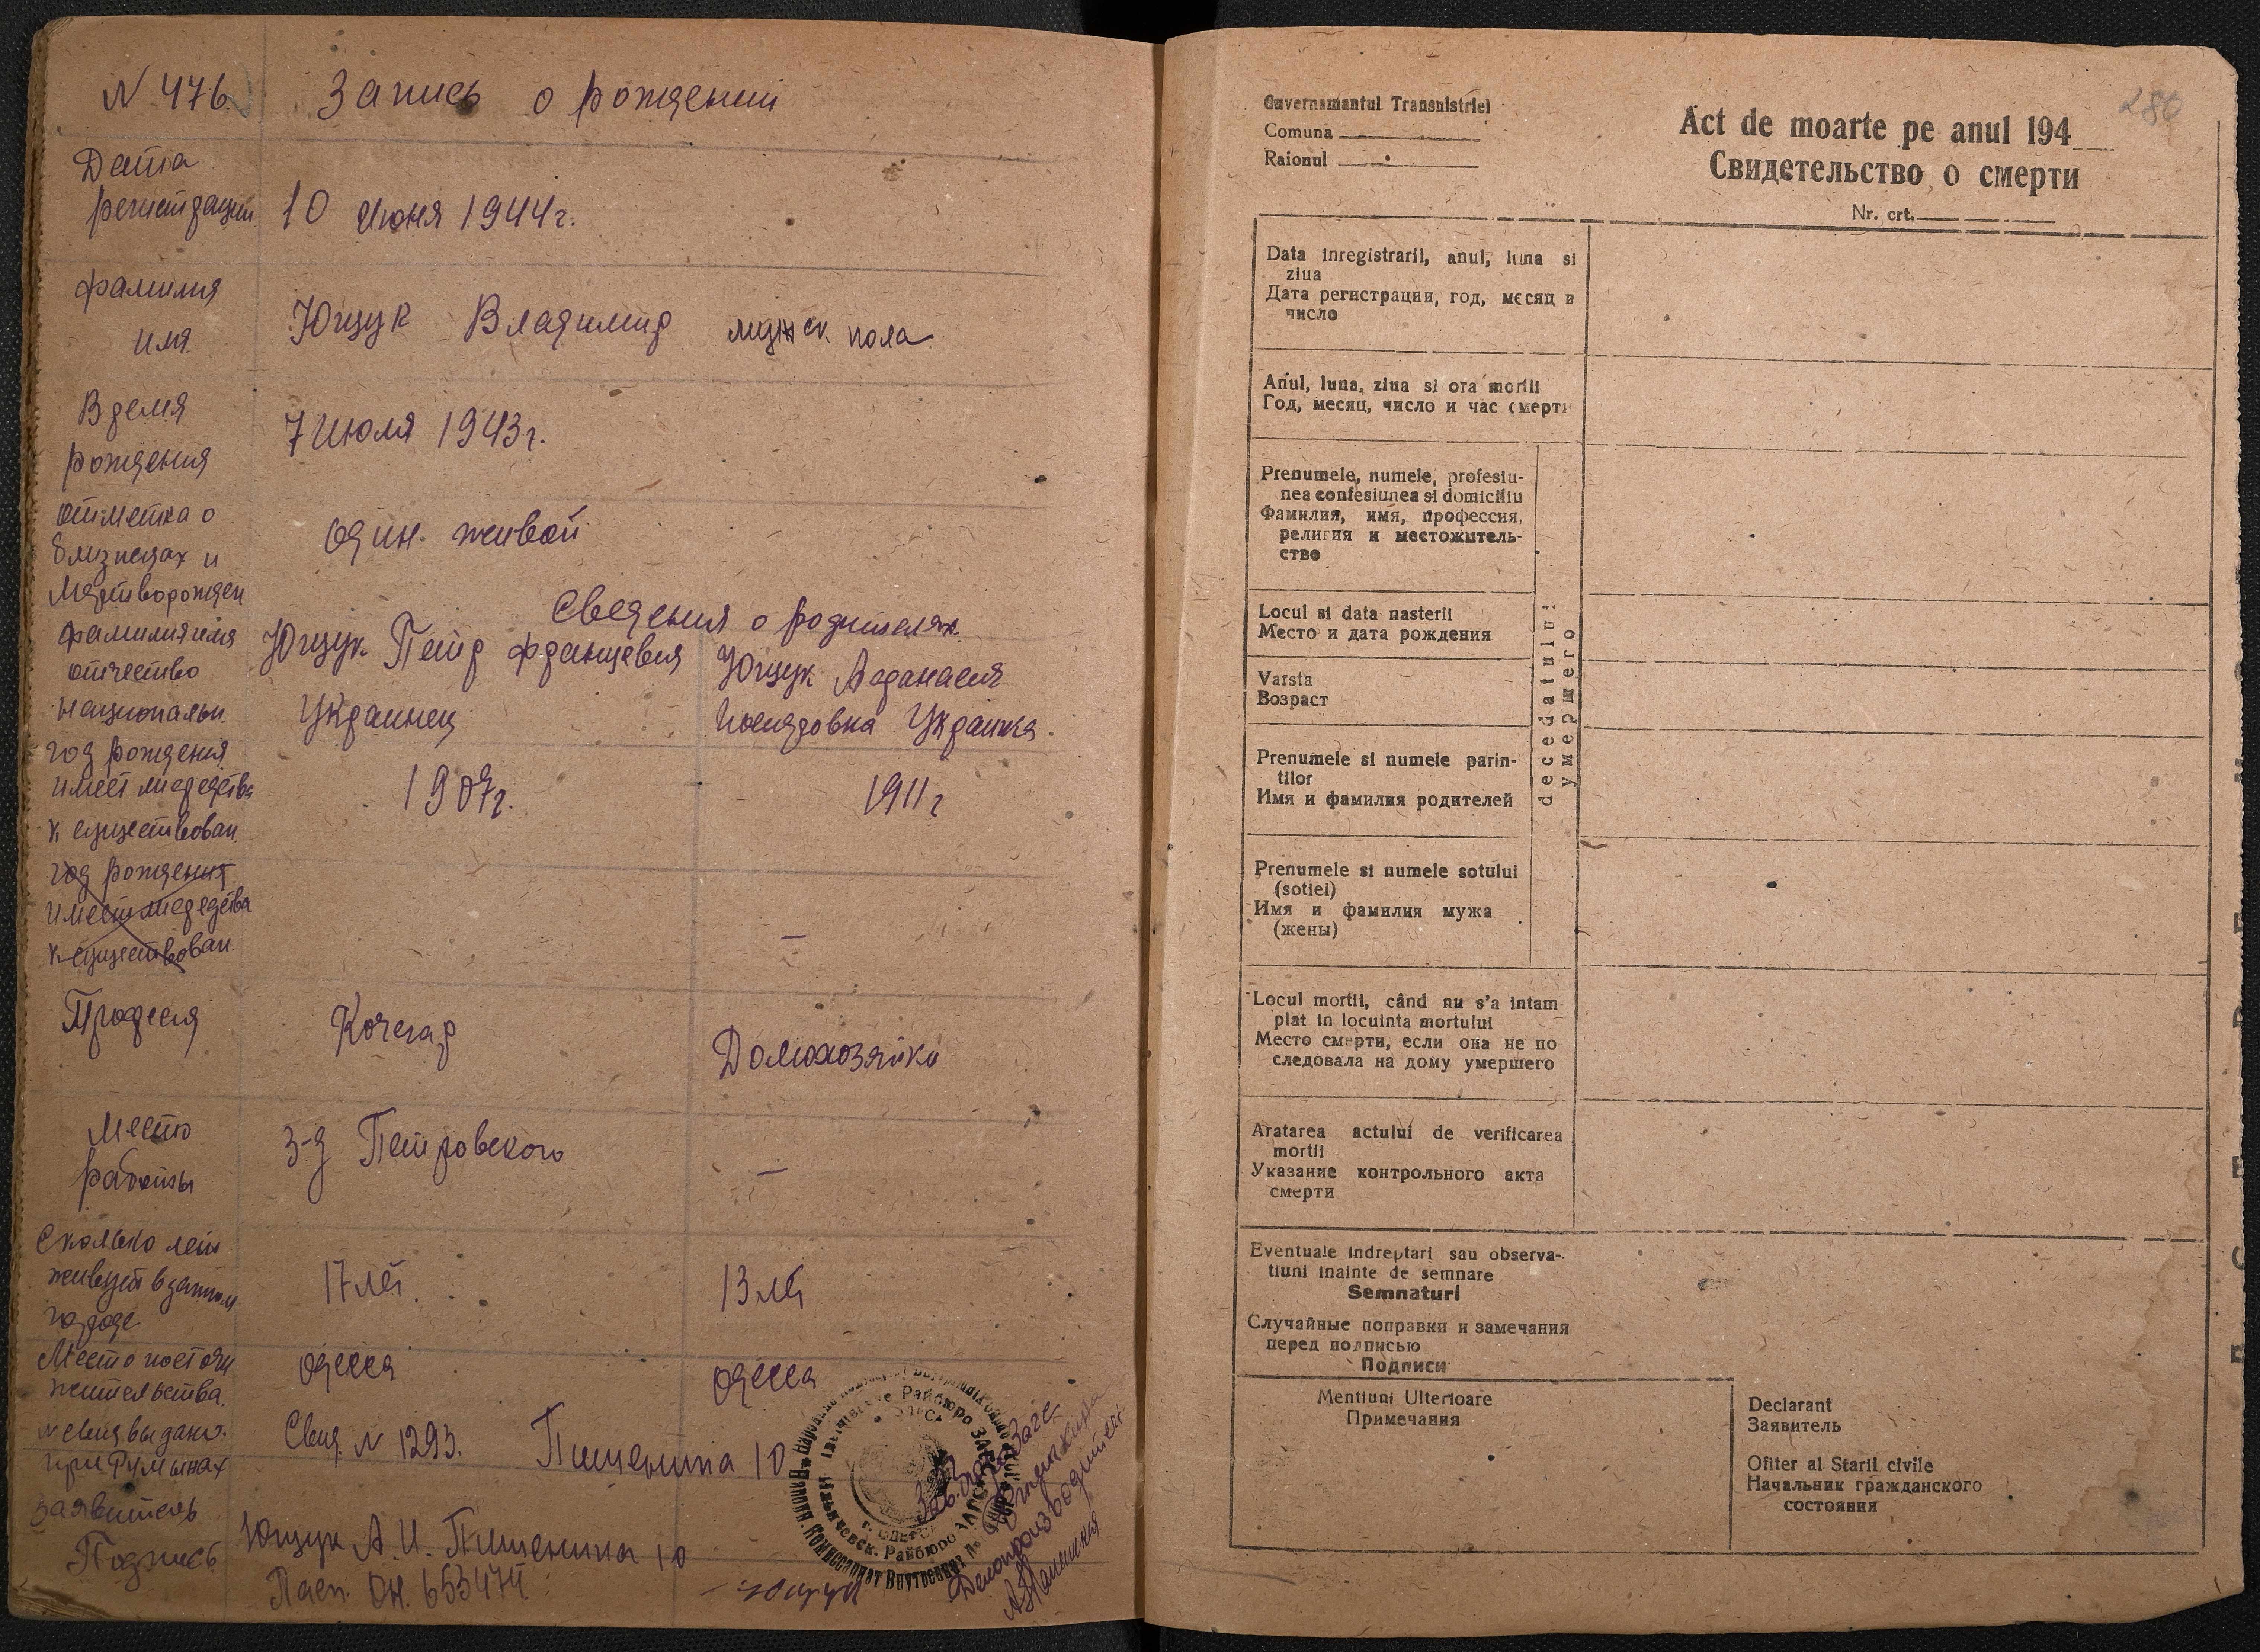 N 476
Запись о рождении
Дата
регистрации
10 Июня 1944 г.
фамилия
имя
Ющук Владимир мужск пола
Время
рождения
7 Июля 1943 г.
отметка о
близнецах и
Мертворожден
один. живой
Сведения о родителях.
фамилия имя
отчество
Ющук Петр Францевич
Ющук Афанасия
национальн.
Украинец
Украинка
год рождения
имеет ли средства
к существован.
1907 г.
1911 г
год рождения
имеет ли средства
к существован
–
Професия
Кочегар
Домохозяйка
Место
работы
З-д Петровского
–
Сколько лет
живует в данном
городе
17 лет
13 лет
Место постоян
жительства.
Одесса
Одесса
N свид выдан.
при Румынах
Свид. N 1293. Пишенина 10
заявитель
Подпись
Ющук А. И. Пишенина 10
Пасп. ОН. 653474
Ющук
Зав. Загс
Делопроизводитель
г. Одесса
286
Guvernamantul Transnistriei
Comuna
Raionul
Act de moarte pe anul 194
Свидетельство о смерти
Nr. crt.
Data inregistrarii, anul, luna si
ziua
Дата регистрации, год, месяц и
число
Anul, luna, ziua si ora mortii
Год, месяц, число и час смерти
Prenumele, numele, profesiu-
nea confesiunea si domiciliu
Фамилия, имя, профессия,
религия и местожитель-
ство
Locul si data nasterii
Место и дата рождения
Varsta
Возраст
Prenumele si numele parin-
tilor
Имя и фамилия родителей
Prenumele si numele sotului
(sotiei)
Имя и фамилия мужа
(жены)
decedatului
умершего
Locul mortii, când nu s'a intam
plat in locuinta mortului
Место смерти, если она не по
следовала на дому умершего
Aratarea actului de verificarea
mortii
Указание контрольного акта
смерти
Eventuale indreptari sau observa-
tiuni inainte de semnare
Semnaturi
Случайные поправки и замечания
перед подписью
Подписи
Mentiuni Ulterioare
Примечания
Declarant
Заявитель
Ofiter al Starii civile
Начальник гражданского
состояния